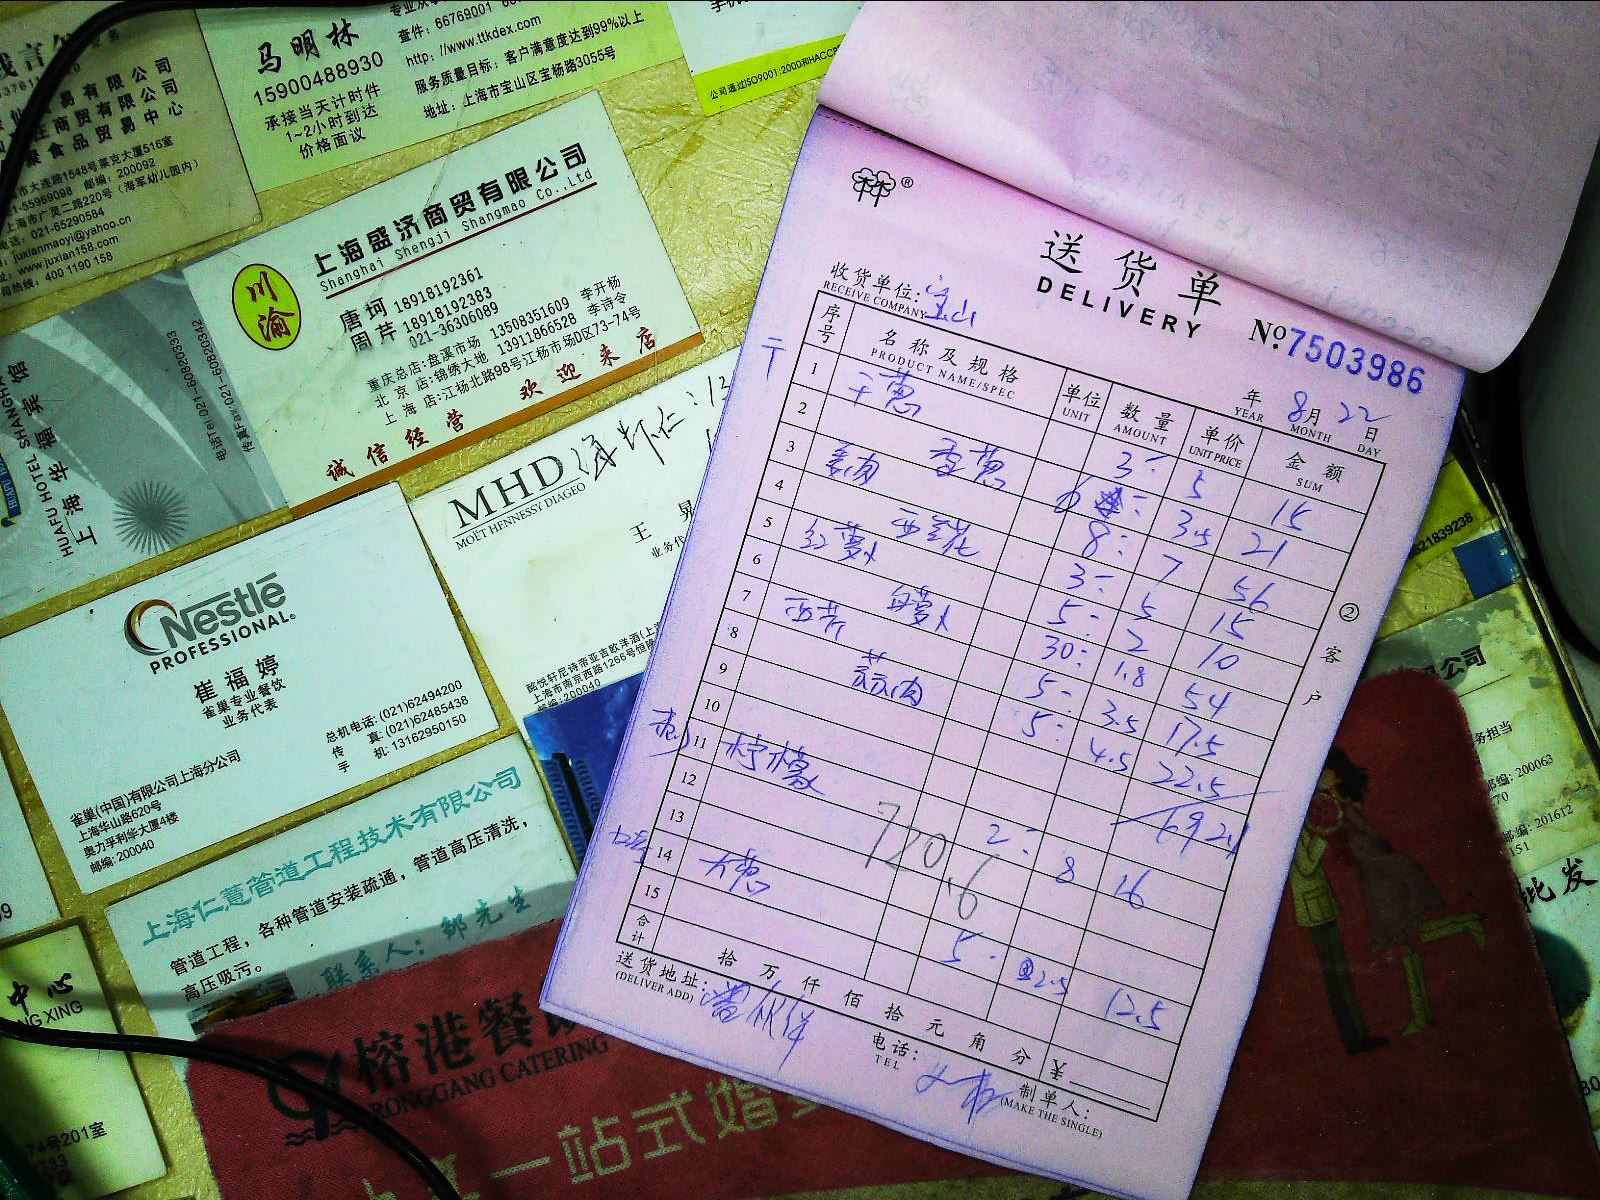 马明林
15900488930
承接当天计时件
1~2小时到达
价格面议
查件: 66769001
http://www.ttkdex.com
服务质量目标: 客户满意度达到99%以上
地址: 上海市宝山区宝杨路3055号
公司通过ISO9001:2000和HACCP
易有限公司
庄商贸有限公司
食品贸易中心
市大连路1548号莱克大厦516室
1-55969098 邮编: 200092
上海市广灵二路220号(海军幼儿园内)
电话: 021-65290584
juxianmaoyi@yahoo.cn
www.juxian158.com
司热线: 400 1190 158
川渝
上海盛济商贸有限公司
Shanghai Shengji Shangmao Co.,Ltd
唐珂 18918192361
周芹 18918192383
021-36306089
重庆总店:盘溪市场 13508351609 李开杨
北京店:锦绣大地 13911866528 李诗令
上海店:江杨北路98号江杨市场D区73-74号
诚信经营 欢迎来店
上海华福宾馆
HUAFU HOTEL SHANGHAI
电话Tel:021-60820333
传真Fax:021-60820342
MHD
MOËT HENNESSY DIAGEO
王
业务代
酩悦轩尼诗帝亚吉欧洋酒(上海
上海市南京西路1266号恒隆
邮编:200040
Nestlé
PROFESSIONAL®
崔福婷
雀巢专业餐饮
业务代表
总机电话: (021)62494200
传 真: (021)62485438
手 机: 13162950150
雀巢(中国)有限公司上海分公司
上海华山路620号
奥力孚利华大厦4楼
邮编: 200040
上海仁薏管道工程技术有限公司
管道工程，各种管道安装疏通，管道高压清洗，
高压吸污。
联系人: 邹先生
中心
NG XING
74号201室
榕港餐饮
RONGGANG CATERING
一站式婚
送货单
DELIVERY
No.7503986
收货单位: 宝山
RECEIVE COMPANY
年 8月 22日
YEAR MONTH DAY
序号 名称及规格 单位 数量 单价 金额
PRODUCT NAME/SPEC UNIT AMOUNT UNIT PRICE SUM
1 干葱 3 5 15
2 香葱 6 3.5 21
3 姜肉 8 7 56
4 西兰花 3 5 15
5 红萝卜 5 2 10
6 白萝卜 30 1.8 54
7 西芹 5 3.5 17.5
8 蒜肉 5 4.5 22.5
9
10
11 柠檬 2 8 16
12
13
14 大葱 5 2.5 12.5
15
720.6
合计 拾 万 仟 佰 拾 元 角 分 ¥
送货地址:
(DELIVER ADD)
电话:
TEL
制单人:
(MAKE THE SINGLE)
② 客户
621839238
限公司
务担当
邮编: 200063
邮编: 201612
批发